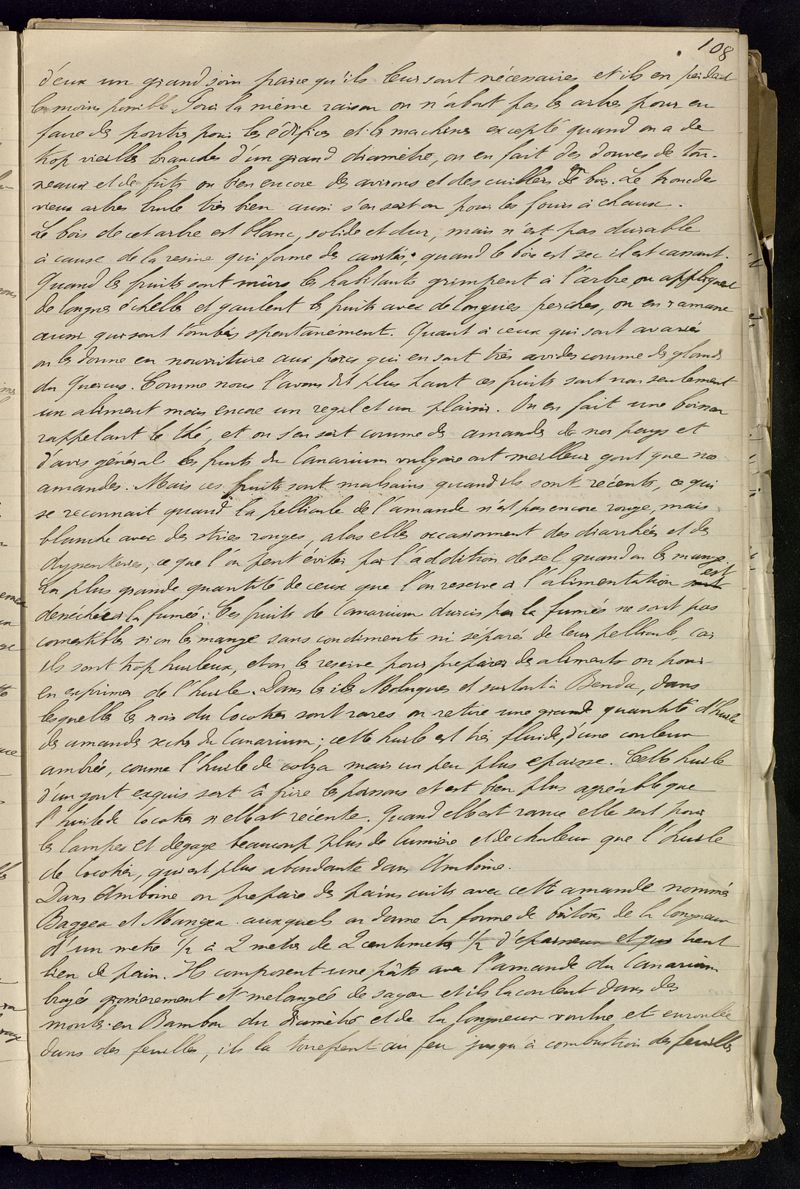 108
d'eux un grand soin parce qu'ils leur sont nécessaires et ils en perdent
le moins possible. Pour la même raison on n'abat pas les arbres pour en
faire des poutres pour les édifices et les machines excepté quand on a de
trop vieilles branches d'un grand diamètre, on en fait des douves de ton-
neaux et de fûts ou bien encore des avirons et des cuillers de bois. Le tronc des
vieux arbres brule très bien aussi s'en sert on pour les fours à chaux.
Le bois de cet arbre est blanc, solide et dur, mais n'est pas durable
à cause de la resine qui forme des cavités; quand le bois est sec il est cassant.
Quand les fruits sont mûrs les habitants grimpent à l'arbre ou appliquent
de longues échelles et gaulent les fruits avec de longues perches, on en ramasse
aussi qui sont tombés spontanément. Quant à ceux qui sont avariés
on les donne en nourriture aux porcs qui en sont très avides comme des glands
du Quercus. Comme nous l'avons dit plus haut ces fruits sont non seulement
un aliment mais encore un regal et un plaisir. On en fait une boisson
rappelant le thé, et on s'en sert comme des amandes de nos pays et
d'avis général les fruits du Canarium vulgare ont meilleur gout que nos
amandes. Mais ces fruits sont malsains quand ils sont récents, ce qui
se reconnait quand la pellicule de l'amande n'est pas encore rouge, mais
blanche avec des stries rouges, alors elles occasionnent des diarrhées et des
dyssenteries, ce que l'on peut éviter par l'addition de sel quand on les mange.
La plus grande quantité de ceux que l'on reserve à l'alimentation est
dessechée à la fumée; Ces fruits de Canarium durcis par la fumée ne sont pas
comestibles si on les mange sans condiments ni séparés de leur pellicule, car
ils sont trop huileux, et on les reserve pour preparer des aliments ou pour
en exprimer de l'huile. Dans les iles Moluques et surtout à Benda, dans
lesquelles les noix du Cocotier sont rares on retire une grande quantité d'huile
des amandes seches du Canarium; cette huile est très fluide, d'une couleur
ambrée, comme l'huile de colza mais un peu plus epaisse. Cette huile
d'un gout exquis sert à frire les poissons et est bien plus agréable que
l'huile de cocotier si elle est récente. Quand elle est rance elle sert pour
les lampes et degage beaucoup plus de lumière et de chaleur que l'huile
de Cocotier, qui est plus abondante dans Amboine.
Dans Amboine on prepare des pains cuits avec cette amande nommés
Baggea et Mangea auxquels on donne la forme de bâtons de la longueur
d'un metre 1/2 à 2 metres de 2 centimetres 1/2 d'epaisseur et qui tient
lieu de pain. Ils composent une pâte avec l'amande du Canarium
broyée grossierement et melangée de sagou et ils la coulent dans des
moules en Bambou du diamètre et de la longueur voulue et enroulée
dans des feuilles, ils la torrefient au feu jusqu'à combustion des feuilles